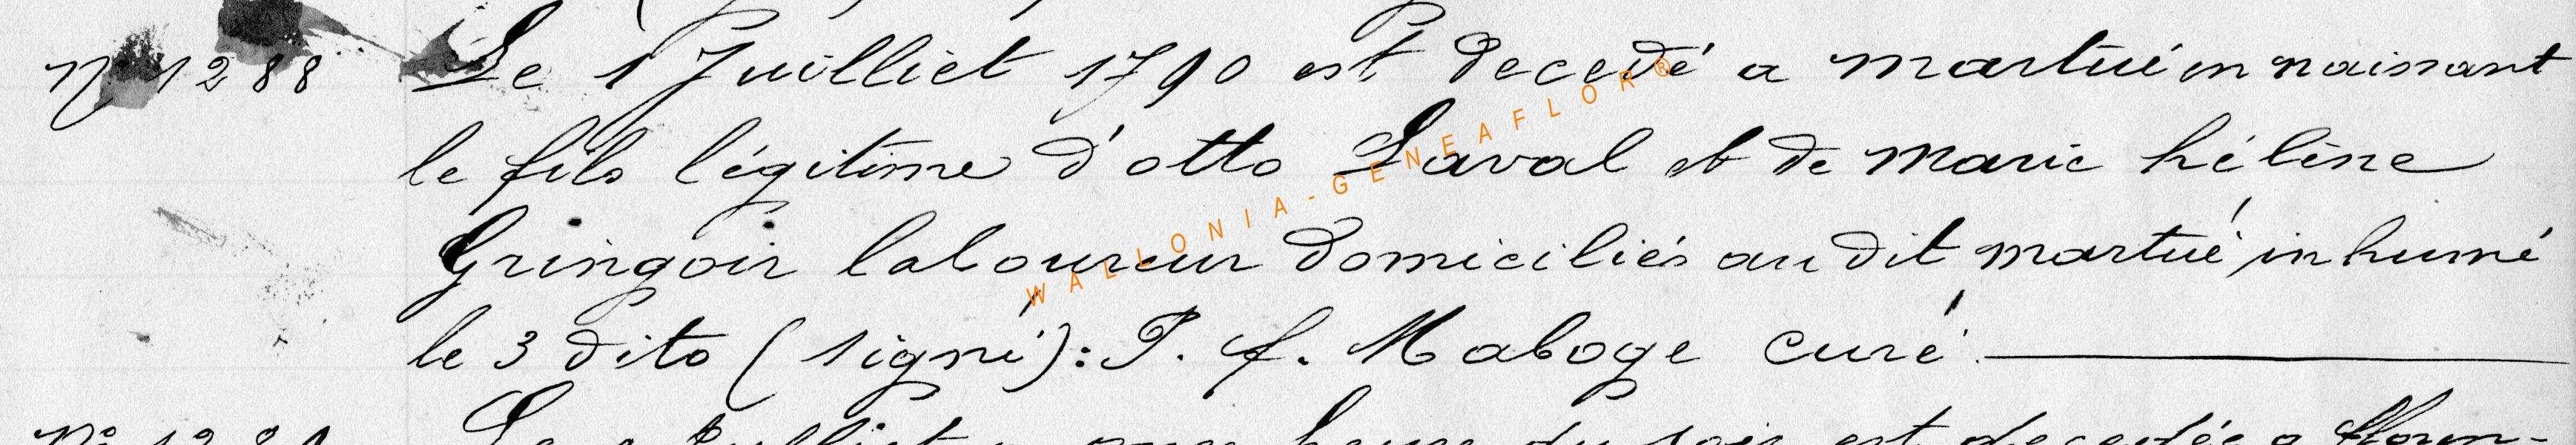 N° 1288 Le 1 Juilliet 1790 est decedé a martué en naissant
le fils légitime d'otto Laval et de marie hélène
Gringoir laboureur domiciliés au dit martué inhumé
le 3 dito (signé): P. f. Maboge curé.
WALLONIA-GENEAFLOR®